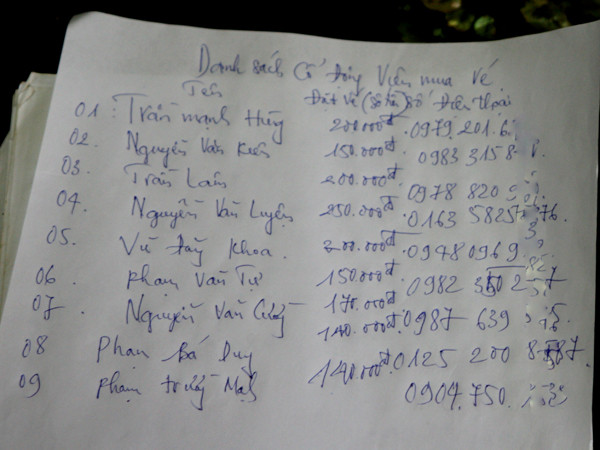 Danh sách Cổ Động Viên mua Vé
Tên Đặt vé (số tiền) Số Điện thoại
01. Trần mạnh Hùng 200.000đ 0979 201.6
02. Nguyễn Văn Kiên 150.000đ 0983 3158
03. Trần Lan 200.000đ 0978 820
04. Nguyễn Văn Luyện 250.000đ 0163 5825 76.
05. Vũ Đăng Khoa. 200.000đ 0948 0969
06. Phạm Văn Tự 150.000đ 0982
07. Nguyễn Văn Cường 170.000đ 0987 639
08 Phạm Bá Duy 140.000đ 0125 200 87.
09 Phạm 140.000đ 0904.750.